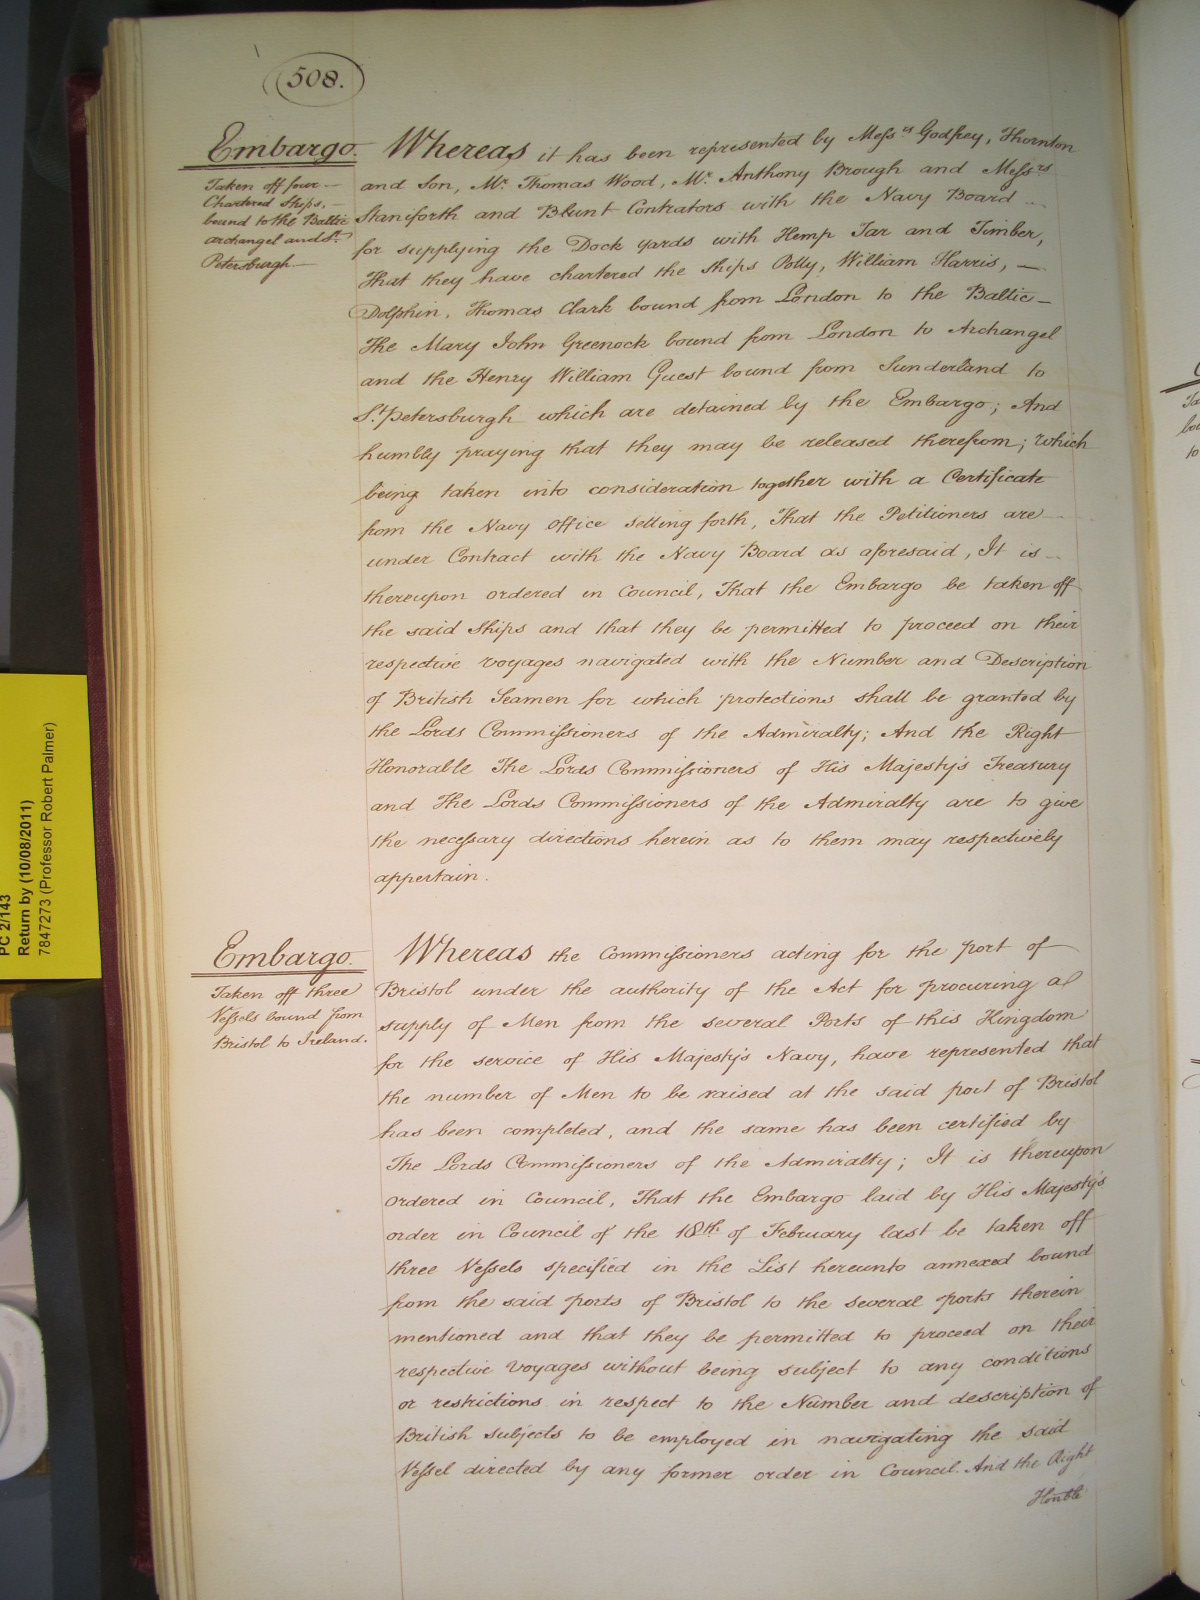 508.
Embargo.
Taken off four
Chartered Ships,
bound to the Baltic
archangel and St.
Petersburgh
Whereas it has been represented by Messrs Godfrey, Thornton
and Son, Mr. Thomas Wood, Mr. Anthony Brough and Messrs
Staniforth and Blunt Contrators with the Navy Board
for supplying the Dock yards with Hemp Tar and Timber,
That they have chartered the ships Polly, William Harris,
Dolphin, Thomas Clark bound from London to the Baltic
The Mary John Greenock bound from London to Archangel
and the Henry William Guest bound from Sunderland to
St. Petersburgh which are detained by the Embargo; And
humbly praying that they may be released therefrom; which
being taken into consideration together with a Certificate
from the Navy Office setting forth, That the Petitioners are
under Contract with the Navy Board as aforesaid, It is
thereupon ordered in Council, That the Embargo be taken off
the said Ships and that they be permitted to proceed on their
respective voyages navigated with the Number and Description
of British Seamen for which protections shall be granted by
the Lords Commissioners of the Admiralty; And the Right
Honorable The Lords Commissioners of His Majesty's Treasury
and The Lords Commissioners of the Admiralty are to give
the necessary directions herein as to them may respectively
appertain.
Embargo.
Taken off three
Vessels bound from
Bristol to Ireland.
Whereas the Commissioners acting for the port of
Bristol under the authority of the Act for procuring a
supply of Men from the several Ports of this Kingdom
for the service of His Majesty's Navy, have represented that
the number of Men to be raised at the said port of Bristol
has been completed, and the same has been certified by
The Lords Commissioners of the Admiralty; It is thereupon
ordered in Council, That the Embargo laid by His Majesty's
order in Council of the 18th of February last be taken off
three Vessels specified in the List hereunto annexed bound
from the said ports of Bristol to the several ports therein
mentioned and that they be permitted to proceed on their
respective voyages without being subject to any conditions
or restrictions in respect to the Number and description of
British subjects to be employed in navigating the said
Vessel directed by any former order in Council. And the Right
Honble
PC 2/143
Return by (10/08/2011)
7847273 (Professor Robert Palmer)